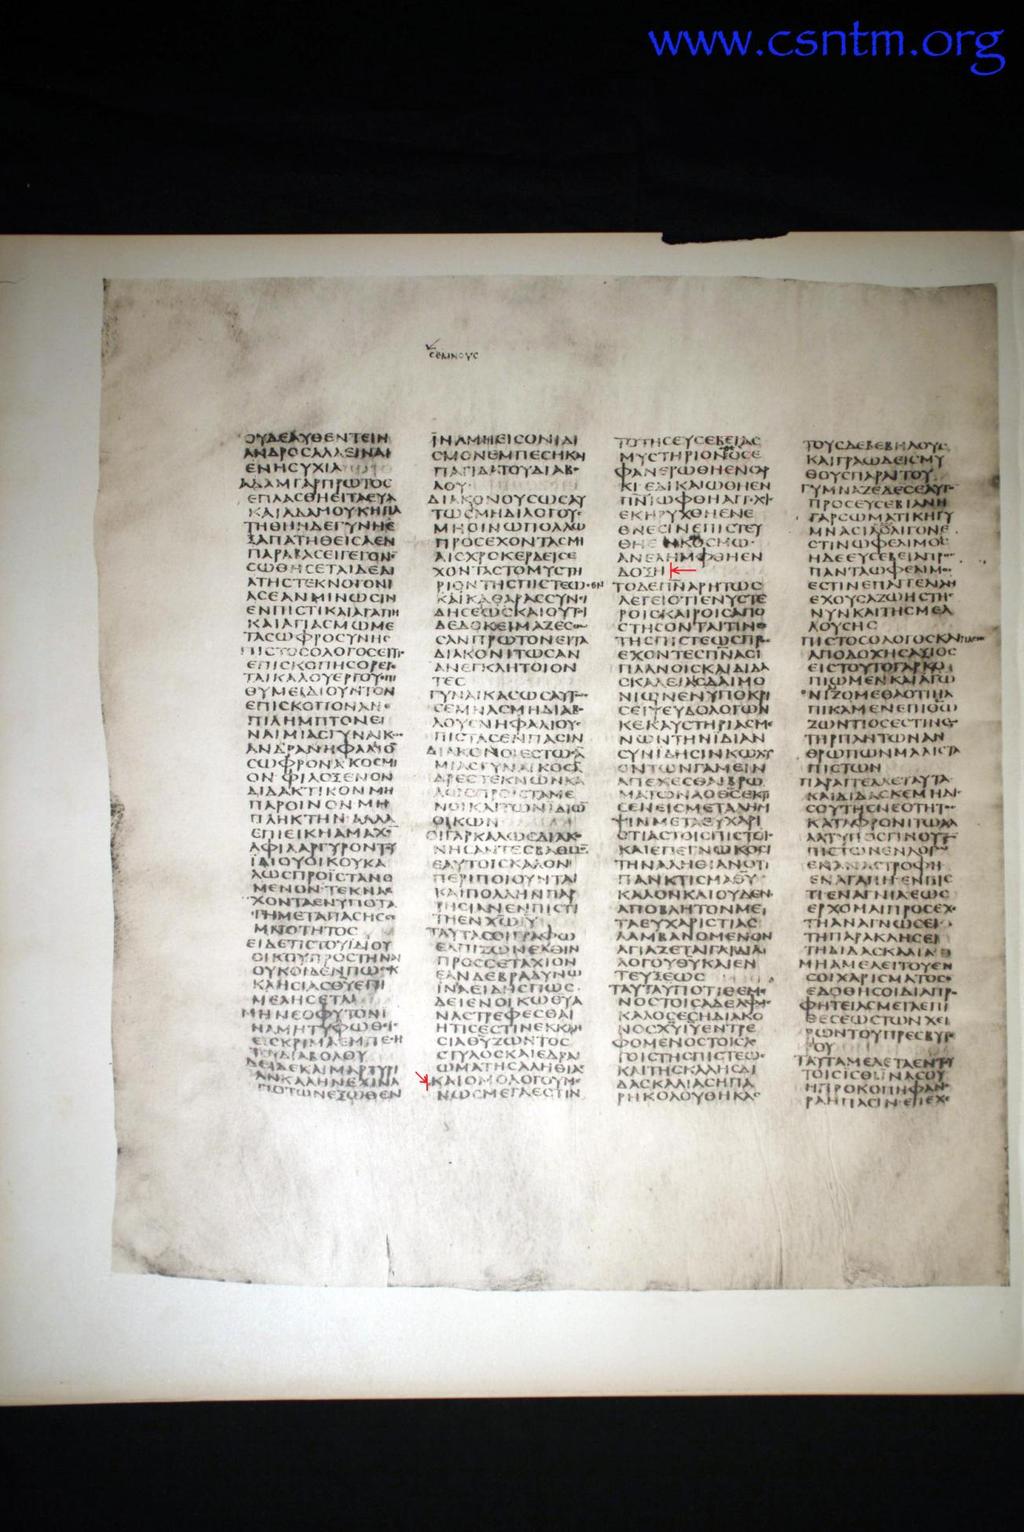 www.csntm.org
ϲεμνουϲ
ΟΥΔΕΑΥΘΕΝΤΕΙΝ
ΑΝΔΡΟϹΑΛΛΕΙΝΑΙ
ΕΝΗϹΥΧΙΑ
ΑΔΑΜΓΑΡΠΡΩΤΟϹ
ΕΠΛΑϹΘΗΕΙΤΑΕΥΑ
ΚΑΙΑΔΑΜΟΥΚΗΠΑ
ΤΗΘΗΗΔΕΓΥΝΗΕ
ΞΑΠΑΤΗΘΕΙϹΑΕΝ
ΠΑΡΑΒΑϹΕΙΓΕΓΟΝ
ϹΩΘΗϹΕΤΑΙΔΕΔΙ
ΑΤΗϹΤΕΚΝΟΓΟΝΙ
ΑϹΕΑΝΜΙΝΩϹΙΝ
ΕΝΠΙϹΤΙΚΑΙΑΓΑΠΗ
ΚΑΙΑΓΙΑϹΜΩΜΕ
ΤΑϹΩΦΡΟϹΥΝΗϹ
ΠΙϹΤΟϹΟΛΟΓΟϹΕΙΤΙ
ΕΠΙϹΚΟΠΗϹΟΡΕΓΕ
ΤΑΙΚΑΛΟΥΕΡΓΟΥΕΠΙ
ΘΥΜΕΙΔΙΟΥΝΤΟΝ
ΕΠΙϹΚΟΠΟΝΑΝΕ
ΠΙΛΗΜΠΤΟΝΕΙ
ΝΑΙΜΙΑϹΓΥΝΑΙΚΟϹ
ΑΝΔΡΑΝΗΦΑΛΙΟ̅
ϹΩΦΡΟΝΑΚΟϹΜΙ
ΟΝΦΙΛΟΞΕΝΟΝ
ΔΙΔΑΚΤΙΚΟΝΜΗ
ΠΑΡΟΙΝΟΝΜΗ
ΠΛΗΚΤΗΝΑΛΛΑ
ΕΠΙΕΙΚΗΑΜΑΧΟ̅
ΑΦΙΛΑΡΓΥΡΟΝΤΟΥ
ΙΔΙΟΥΟΙΚΟΥΚΑ
ΛΩϹΠΡΟΪϹΤΑΝΟ
ΜΕΝΟΝΤΕΚΝΑΕ
ΧΟΝΤΑΕΝΥΠΟΤΑ
ΓΗΜΕΤΑΠΑϹΗϹϹΕ
ΜΝΟΤΗΤΟϹ
ΕΙΔΕΤΙϹΤΟΥΪΔΙΟΥ
ΟΙΚΟΥΠΡΟϹΤΗΝΑΙ
ΟΥΚΟΙΔΕΝΠΩϹΕΚ
ΚΛΗϹΙΑϹΘΥΕΠΙ
ΜΕΛΗϹΕΤΑΙ
ΜΗΝΕΟΦΥΤΟΝΙ
ΝΑΜΗΤΥΦΩΘΙϹ
ΕΙϹΚΡΙΜΑΕΜΠΕϹΗ
ΤΟΥΔΙΑΒΟΛΟΥ
ΔΕΙΔΕΚΑΙΜΑΡΤΥΡΙ
ΑΝΚΑΛΗΝΕΧΙΝΑ
ΠΟΤΩΝΕΞΩΘΕΝ
ΪΝΑΜΗΕΙϹΟΝΙΔΙ
ϹΜΟΝΕΜΠΕϹΗΚΑΙ
ΠΑΓΙΔΑΤΟΥΔΙΑΒΟ
ΛΟΥ
ΔΙΑΚΟΝΟΥϹΩϹΑΥ
ΤΩϹΜΗΔΙΛΟΓΟΥϹ
ΜΗΟΙΝΩΠΟΛΛΩ
ΠΡΟϹΕΧΟΝΤΑϹΜΗ
ΑΙϹΧΡΟΚΕΡΔΕΙϹΕ
ΧΟΝΤΑϹΤΟΜΥϹΤΗ
ΡΙΟΝΤΗϹΠΙϹΤΕΩϹΕΝ
ΚΑΙΚΑΘΑΡΑϹΥΝΙ
ΔΗϹΕΩϹΚΑΙΟΥΤΟΙ
ΔΕΔΟΚΕΙΜΑΖΕϹΘΩ
ϹΑΝΠΡΩΤΟΝΕΙΤΑ
ΔΙΑΚΟΝΙΤΩϹΑΝ
ΑΝΕΓΚΛΗΤΟΙΟΝ
ΤΕϹ
ΓΥΝΑΙΚΑϹΩϹΑΥΤΩϹ
ϹΕΜΝΑϹΜΗΔΙΑΒΟ
ΛΟΥϹΝΗΦΑΛΙΟΥϹ
ΠΙϹΤΑϹΕΝΠΑϹΙΝ
ΔΙΑΚΟΝΟΙΕϹΤΩϹΑ̅
ΜΙΑϹΓΥΝΑΙΚΟϹΑ̅
ΔΡΕϹΤΕΚΝΩΝΚΑ
ΛΩϹΠΡΟΪϹΤΑΜΕ
ΝΟΙΚΑΙΤΩΝΙΔΙΩ̅
ΟΙΚΩΝ
ΟΙΓΑΡΚΑΛΩϹΔΙΑΚΟ
ΝΗϹΑΝΤΕϹΒΑΘΜΟ̅
ΕΑΥΤΟΙϹΚΑΛΟΝ
ΠΕΡΙΠΟΙΟΥΝΤΑΙ
ΚΑΙΠΟΛΛΗΝΠΑΡ
ΡΗϹΙΑΝΕΝΠΙϹΤΙ
ΤΗΕΝΧΩ̅ΙΥ̅
ΤΑΥΤΑϹΟΙΓΡΑΦΩ
ΕΛΠΙΖΩΝΕΛΘΙΝ
ΠΡΟϹϹΕΤΑΧΙΟΝ
ΕΑΝΔΕΒΡΑΔΥΝΩ
ΙΝΑΕΙΔΗϹΠΩϹ
ΔΕΙΕΝΟΙΚΩΘΥΑ
ΝΑϹΤΡΕΦΕϹΘΑΙ
ΗΤΙϹΕϹΤΙΝΕΚΚΛΗ
ϹΙΑΘΥΖΩΝΤΟϹ
ϹΤΥΛΟϹΚΑΙΕΔΡΑΙ
ΩΜΑΤΗϹΑΛΗΘΙΑϹ
ΚΑΙΟΜΟΛΟΓΟΥΜΕ
ΝΩϹΜΕΓΑΕϹΤΙΝ
ΤΟΤΗϹΕΥϹΕΒΕΙΑϹ
ΜΥϹΤΗΡΙΟΝΟϹΕ
ΦΑΝΕΡΩΘΗΕΝϹΑΡ
ΚΙΕΔΙΚΑΙΩΘΗΕΝ
ΠΝΙ̅ΩΦΘΗΑΓΓΕΛΟΙϹ
ΕΚΗΡΥΧΘΗΕΝΕ
ΘΝΕϹΙΝΕΠΙϹΤΕΥ
ΘΗΕΝΚΟϹΜΩ
ΑΝΕΛΗΜΦΘΗΕΝ
ΔΟΞΗ
ΤΟΔΕΠΝΑ̅ΡΗΤΩϹ
ΛΕΓΕΙΟΤΙΕΝΥϹΤΕ
ΡΟΙϹΚΑΙΡΟΙϹΑΠΟ
ϹΤΗϹΟΝΤΑΙΤΙΝΕϹ
ΤΗϹΠΙϹΤΕΩϹΠΡΟϹ
ΕΧΟΝΤΕϹΠΝΑ̅ϹΙ
ΠΛΑΝΟΙϹΚΑΙΔΙΔΑ
ϹΚΑΛΕΙΑϹΔΑΙΜΟ
ΝΙΩΝΕΝΥΠΟΚΡΙ
ϹΕΙΨΕΥΔΟΛΟΓΩΝ
ΚΕΚΑΥϹΤΗΡΙΑϹΜΕ
ΝΩΝΤΗΝΙΔΙΑΝ
ϹΥΝΙΔΗϹΙΝΚΩΛΥ
ΟΝΤΩΝΓΑΜΕΙΝ
ΑΠΕΧΕϹΘΑΙΒΡΩ
ΜΑΤΩΝΑΟΘϹΕΚΤΙ
ϹΕΝΕΙϹΜΕΤΑΛΗΜ
ΨΙΝΜΕΤΑΕΥΧΑΡΙ
ϹΤΙΑϹΤΟΙϹΠΙϹΤΟΙϹ
ΚΑΙΕΠΕΓΝΩΚΟϹΙ
ΤΗΝΑΛΗΘΙΑΝΟΤΙ
ΠΑΝΚΤΙϹΜΑΘΥ
ΚΑΛΟΝΚΑΙΟΥΔΕΝ
ΑΠΟΒΛΗΤΟΝΜΕ
ΤΑΕΥΧΑΡΙϹΤΙΑϹ
ΛΑΜΒΑΝΟΜΕΝΟΝ
ΑΓΙΑΖΕΤΑΙΓΑΡΔΙΑ
ΛΟΓΟΥΘΥΚΑΙΕΝ
ΤΕΥΞΕΩϹ
ΤΑΥΤΑΥΠΟΤΙΘΕΜΕ
ΝΟϹΤΟΙϹΑΔΕΛΦΟΙϹ
ΚΑΛΟϹΕϹΗΔΙΑΚΟ
ΝΟϹΧΥΙΥΕΝΤΡΕ
ΦΟΜΕΝΟϹΤΟΙϹΛΟ
ΓΟΙϹΤΗϹΠΙϹΤΕΩϹ
ΚΑΙΤΗϹΚΑΛΗϹΔΙ
ΔΑϹΚΑΛΙΑϹΗΠΑ
ΡΗΚΟΛΟΥΘΗΚΑϹ
ΤΟΥϹΔΕΒΕΒΗΛΟΥϹ
ΚΑΙΓΡΑΩΔΕΙϹΜΥ
ΘΟΥϹΠΑΡΑΙΤΟΥ
ΓΥΜΝΑΖΕΔΕϹΕΑΥΤΟ̅
ΠΡΟϹΕΥϹΕΒΙΑΝΗ
ΓΑΡϹΩΜΑΤΙΚΗΓΥ
ΜΝΑϹΙΑΟΛΙΓΟΝΕ
ϹΤΙΝΩΦΕΛΙΜΟϹ
ΗΔΕΕΥϹΕΒΕΙΑΠΡΟϹ
ΠΑΝΤΑΩΦΕΛΙΜΟϹ
ΕϹΤΙΝΕΠΑΓΓΕΛΙΑΝ
ΕΧΟΥϹΑΖΩΗϹΤΗϹ
ΝΥΝΚΑΙΤΗϹΜΕΛ
ΛΟΥϹΗϹ
ΠΙϹΤΟϹΟΛΟΓΟϹΚΑΙΠΑϹΗϹ
ΑΠΟΔΟΧΗϹΑΞΙΟϹ
ΕΙϹΤΟΥΤΟΓΑΡΚΟ
ΠΙΩΜΕΝΚΑΙΑΓΩ
ΝΙΖΟΜΕΘΑΟΤΙΗΛ
ΠΙΚΑΜΕΝΕΠΙΘΩ
ΖΩΝΤΙΟϹΕϹΤΙΝϹΩ
ΤΗΡΠΑΝΤΩΝΑΝ
ΘΡΩΠΩΝΜΑΛΙϹΤΑ
ΠΙϹΤΩΝ
ΠΑΡΑΓΓΕΛΛΕΤΑΥΤΑ
ΚΑΙΔΙΔΑϹΚΕΜΗΔΙϹ
ϹΟΥΤΗϹΝΕΟΤΗΤΟϹ
ΚΑΤΑΦΡΟΝΙΤΩΑΛ
ΛΑΤΥΠΟϹΓΙΝΟΥΤΩ̅
ΠΙϹΤΩΝΕΝΛΟΓΩ
ΕΝΑΝΑϹΤΡΟΦΗ
ΕΝΑΓΑΠΗΕΝΠΙϹ
ΤΙΕΝΑΓΝΙΑΕΩϹ
ΕΡΧΟΜΑΙΠΡΟϹΕΧΕ
ΤΗΑΝΑΓΝΩϹΕΙ
ΤΗΠΑΡΑΚΛΗϹΕΙ
ΤΗΔΙΔΑϹΚΑΛΙΑ
ΜΗΑΜΕΛΕΙΤΟΥΕΝ
ϹΟΙΧΑΡΙϹΜΑΤΟϹΟ
ΕΔΟΘΗϹΟΙΔΙΑΠΡΟ
ΦΗΤΕΙΑϹΜΕΤΑΕΠΙ
ΘΕϹΕΩϹΤΩΝΧΕΙ
ΡΩΝΤΟΥΠΡΕϹΒΥΤΕ
ΡΟΥ
ΤΑΥΤΑΜΕΛΕΤΑΕΝΤΟΥ
ΤΟΙϹΙϹΘΙΙΝΑϹΟΥ
ΗΠΡΟΚΟΠΗΦΑΝΕ
ΡΑΗΠΑϹΙΝΕΠΕΧΕ